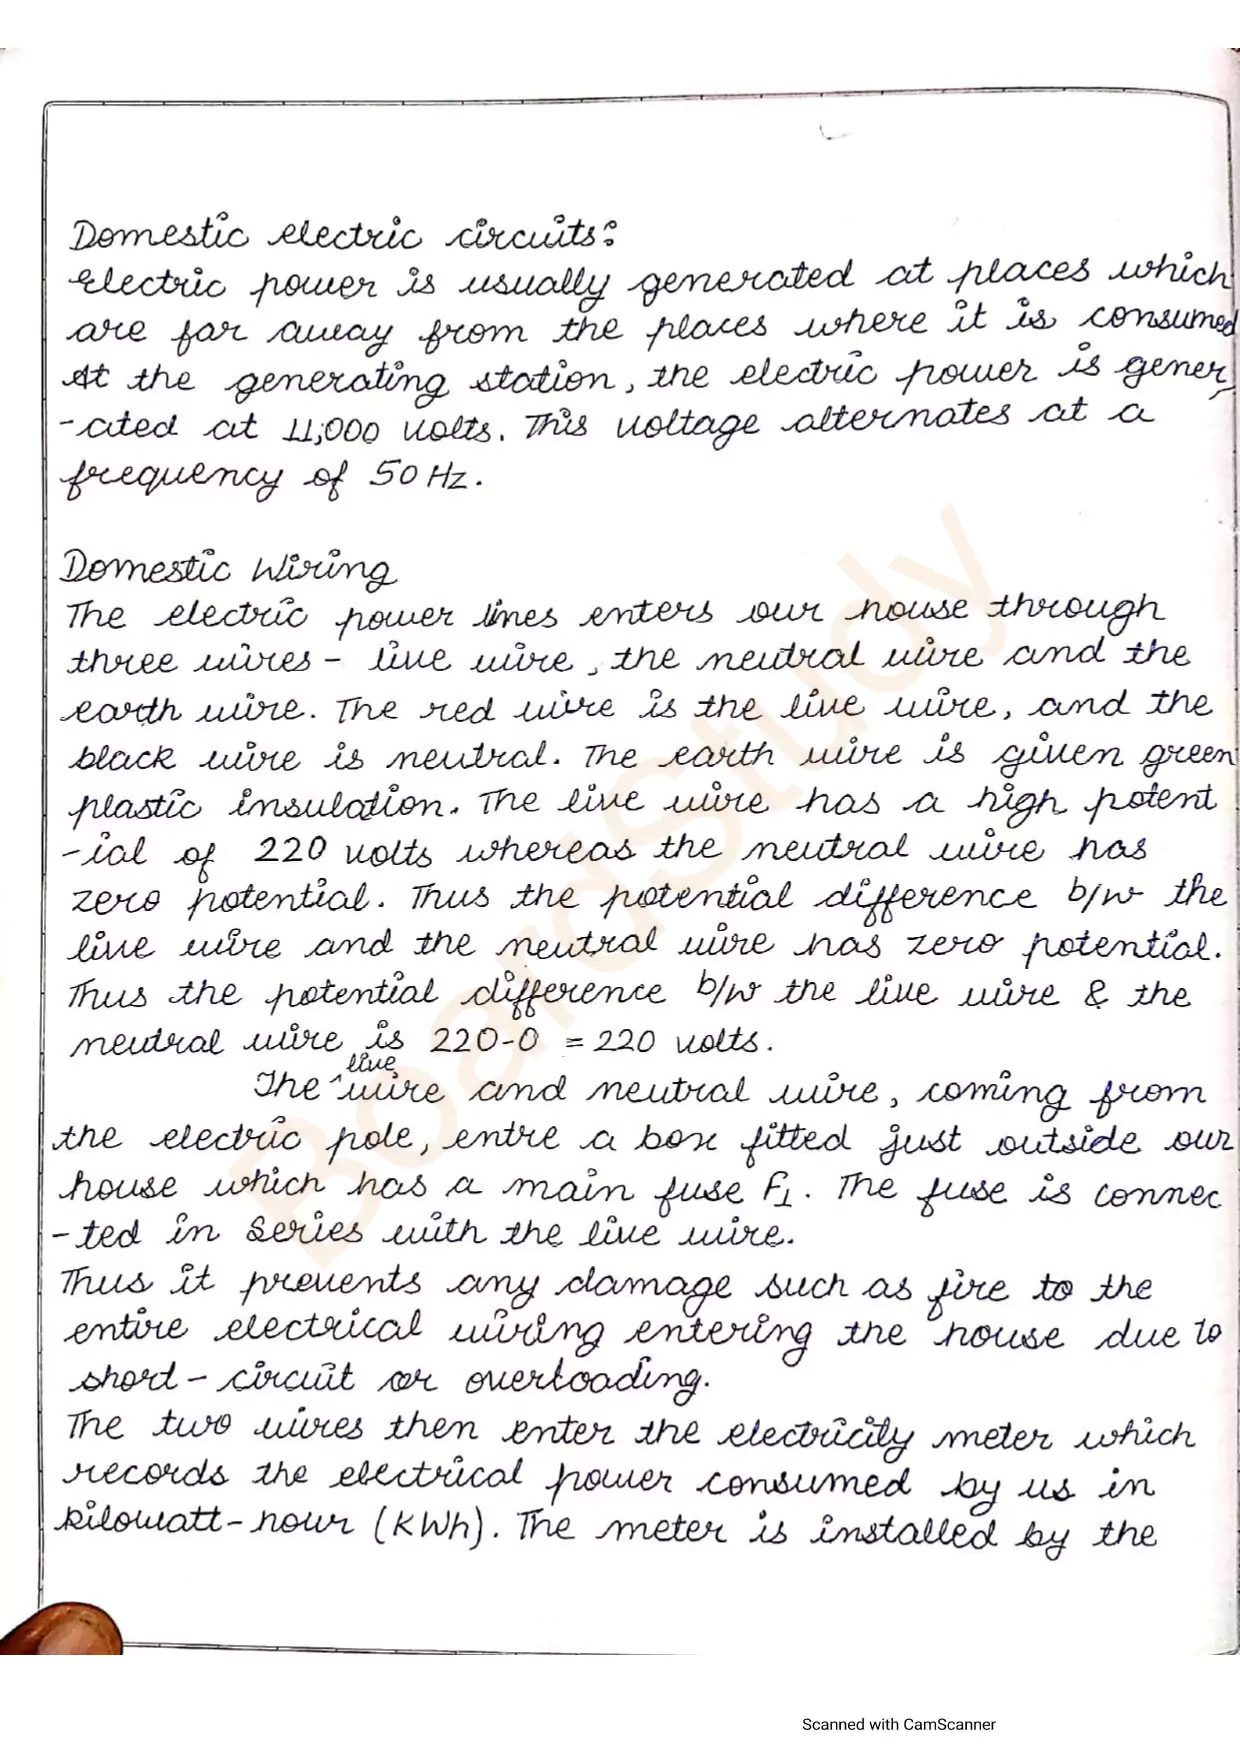 Domestic electric circuits:
Electric power is usually generated at places which
are far away from the places where it is consumed
At the generating station, the electric power is gener
-ated at 11,000 volts. This voltage alternates at a
frequency of 50 Hz.
Domestic Wiring
The electric power lines enters our house through
three wires - live wire, the neutral wire and the
earth wire. The red wire is the live wire, and the
black wire is neutral. The earth wire is given green
plastic insulation. The live wire has a high potent
-ial of 220 volts whereas the neutral wire has
zero potential. Thus the potential difference b/w the
live wire and the neutral wire has zero potential.
Thus the potential difference b/w the live wire & the
neutral wire is 220-0 = 220 volts.
The live wire and neutral wire, coming from
the electric pole, entre a box fitted just outside our
house which has a main fuse F1. The fuse is connec
-ted in Series with the live wire.
Thus it prevents any damage such as fire to the
entire electrical wiring entering the house due to
short-circuit or overloading.
The two wires then enter the electricity meter which
records the electrical power consumed by us in
kilowatt-hour (KWh). The meter is installed by the
BoardStudy
Scanned with CamScanner